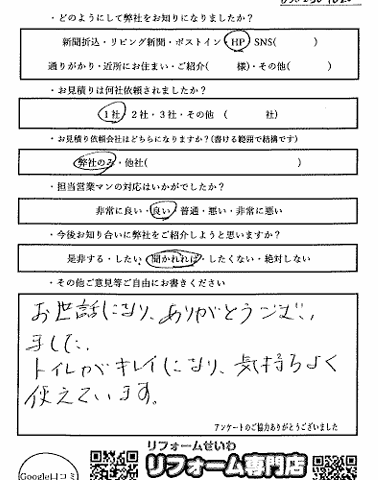 ・どのようにして弊社をお知りになりましたか?
新聞折込・リビング新聞・ポストイン・HP・SNS(　　　)
通りがかり・近所にお住まい・ご紹介(　　　様)・その他(　　　)
・お見積りは何社依頼されましたか?
1社・2社・3社・その他　(　　　社)
・お見積り依頼会社はどちらになりますか?(書ける範囲で結構です)
弊社のみ・他社(　　　)
・担当営業マンの対応はいかがでしたか?
非常に良い・良い・普通・悪い・非常に悪い
・今後お知り合いに弊社をご紹介しようと思いますか?
是非する・したい・聞かれれば・したくない・絶対しない
・その他ご意見等ご自由にお書きください
お世話になり、ありがとうござい
ました。
トイレがキレイになり、気持ちよく
使えています。
アンケートのご協力ありがとうございました
リフォームせいわ
リフォーム専門店
Google口コミ